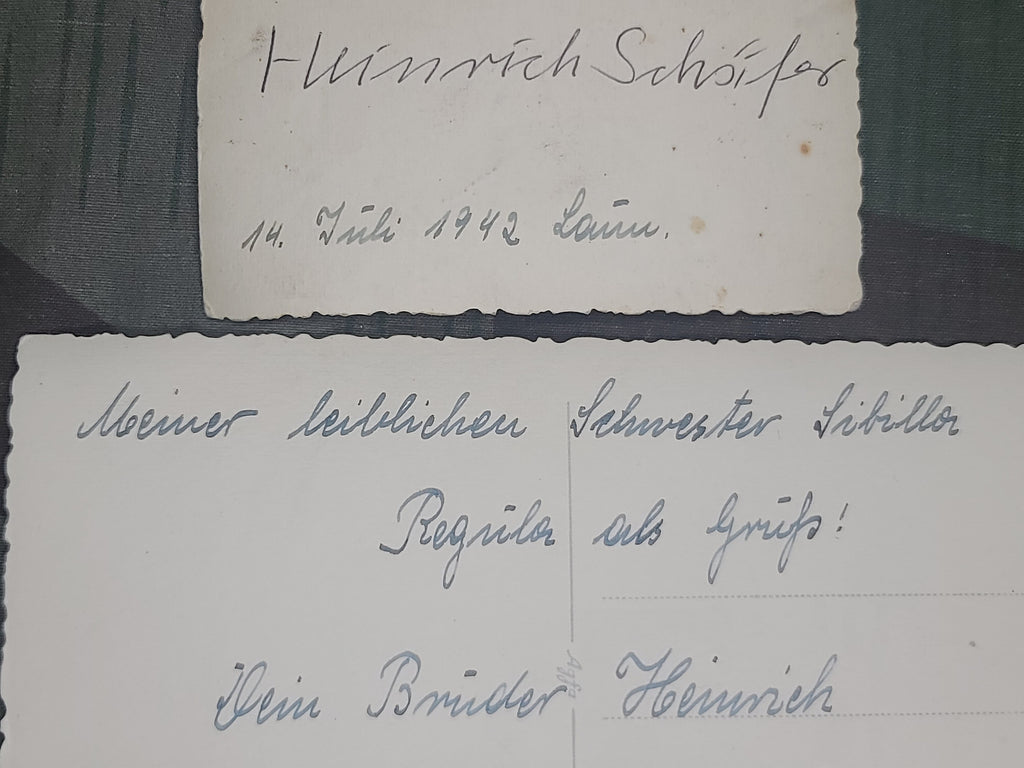 Heinrich Schäfer
14. Juli 1942 Laun.
Meiner leiblichen Schwester Sibilla
Regula als Gruß!
Dein Bruder Heinrich
Agfa